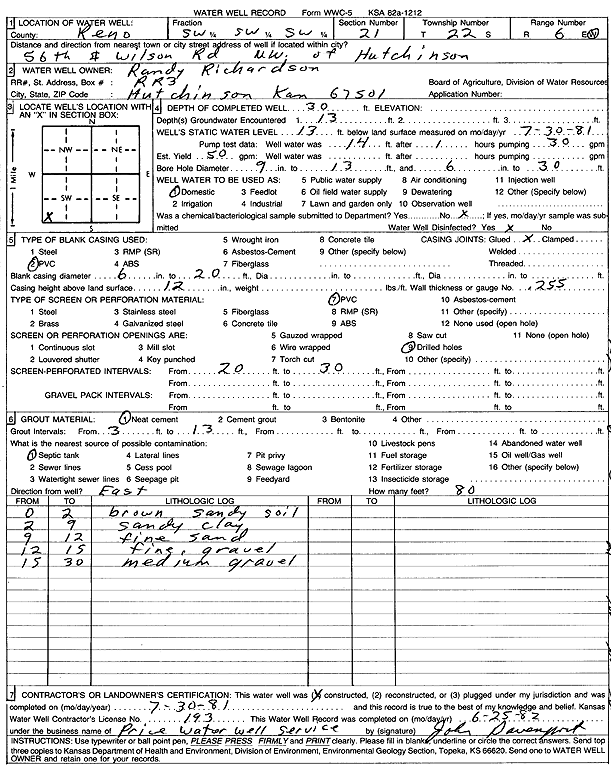 WATER WELL RECORD Form WWC-5 KSA 82a-1212
1 LOCATION OF WATER WELL: Fraction Section Number Township Number Range Number
County: Reno SW ¼ SW ¼ SW ¼ 21 T 22 S R 6 E(W)
Distance and direction from nearest town or city street address of well if located within city?
56th & Wilson Rd NW. of Hutchinson
2 WATER WELL OWNER: Randy Richardson
RR#, St. Address, Box # : RR3 Board of Agriculture, Division of Water Resources
City, State, ZIP Code : Hutchinson Kan 67501 Application Number:
3 LOCATE WELL'S LOCATION WITH AN "X" IN SECTION BOX:
N
NW NE
W E
SW SE
X
S
1 Mile
4 DEPTH OF COMPLETED WELL 30 ft. ELEVATION:
Depth(s) Groundwater Encountered 1. 13 ft. 2. ft. 3. ft.
WELL'S STATIC WATER LEVEL 13 ft. below land surface measured on mo/day/yr 7-30-81
Pump test data: Well water was 14 ft. after 1 hours pumping 30 gpm
Est. Yield 50 gpm: Well water was ft. after hours pumping gpm
Bore Hole Diameter 9 in. to 13 ft., and 6 in. to 30 ft.
WELL WATER TO BE USED AS: 5 Public water supply 8 Air conditioning 11 Injection well
1 Domestic 3 Feedlot 6 Oil field water supply 9 Dewatering 12 Other (Specify below)
2 Irrigation 4 Industrial 7 Lawn and garden only 10 Observation well
Was a chemical/bacteriological sample submitted to Department? Yes No X ; If yes, mo/day/yr sample was submitted
Water Well Disinfected? Yes X No
5 TYPE OF BLANK CASING USED: 5 Wrought iron 8 Concrete tile CASING JOINTS: Glued X Clamped
1 Steel 3 RMP (SR) 6 Asbestos-Cement 9 Other (specify below) Welded
2 PVC 4 ABS 7 Fiberglass Threaded
Blank casing diameter 6 in. to 20 ft., Dia in. to ft., Dia in. to ft.
Casing height above land surface 12 in., weight lbs./ft. Wall thickness or gauge No. .255
TYPE OF SCREEN OR PERFORATION MATERIAL: 7 PVC 10 Asbestos-cement
1 Steel 3 Stainless steel 5 Fiberglass 8 RMP (SR) 11 Other (specify)
2 Brass 4 Galvanized steel 6 Concrete tile 9 ABS 12 None used (open hole)
SCREEN OR PERFORATION OPENINGS ARE: 5 Gauzed wrapped 8 Saw cut 11 None (open hole)
1 Continuous slot 3 Mill slot 6 Wire wrapped 9 Drilled holes
2 Louvered shutter 4 Key punched 7 Torch cut 10 Other (specify)
SCREEN-PERFORATED INTERVALS: From 20 ft. to 30 ft., From ft. to ft.
From ft. to ft., From ft. to ft.
GRAVEL PACK INTERVALS: From ft. to ft., From ft. to ft.
From ft. to ft., From ft. to ft.
6 GROUT MATERIAL: 1 Neat cement 2 Cement grout 3 Bentonite 4 Other
Grout Intervals: From 3 ft. to 13 ft., From ft. to ft., From ft. to ft.
What is the nearest source of possible contamination: 10 Livestock pens 14 Abandoned water well
1 Septic tank 4 Lateral lines 7 Pit privy 11 Fuel storage 15 Oil well/Gas well
2 Sewer lines 5 Cess pool 8 Sewage lagoon 12 Fertilizer storage 16 Other (specify below)
3 Watertight sewer lines 6 Seepage pit 9 Feedyard 13 Insecticide storage
Direction from well? East How many feet? 80
FROM TO LITHOLOGIC LOG FROM TO LITHOLOGIC LOG
0 2 brown sandy soil
2 9 sandy clay
9 12 fine sand
12 15 fine gravel
15 30 medium gravel
7 CONTRACTOR'S OR LANDOWNER'S CERTIFICATION: This water well was (X) constructed, (2) reconstructed, or (3) plugged under my jurisdiction and was
completed on (mo/day/year) 7-30-81 and this record is true to the best of my knowledge and belief. Kansas
Water Well Contractor's License No. 193 This Water Well Record was completed on (mo/day/yr) 6-25-82
under the business name of Price Water Well Service by (signature) John Davenport
INSTRUCTIONS: Use typewriter or ball point pen, PLEASE PRESS FIRMLY and PRINT clearly. Please fill in blanks, underline or circle the correct answers. Send top
three copies to Kansas Department of Health and Environment, Division of Environment, Environmental Geology Section, Topeka, KS 66620. Send one to WATER WELL
OWNER and retain one for your records.